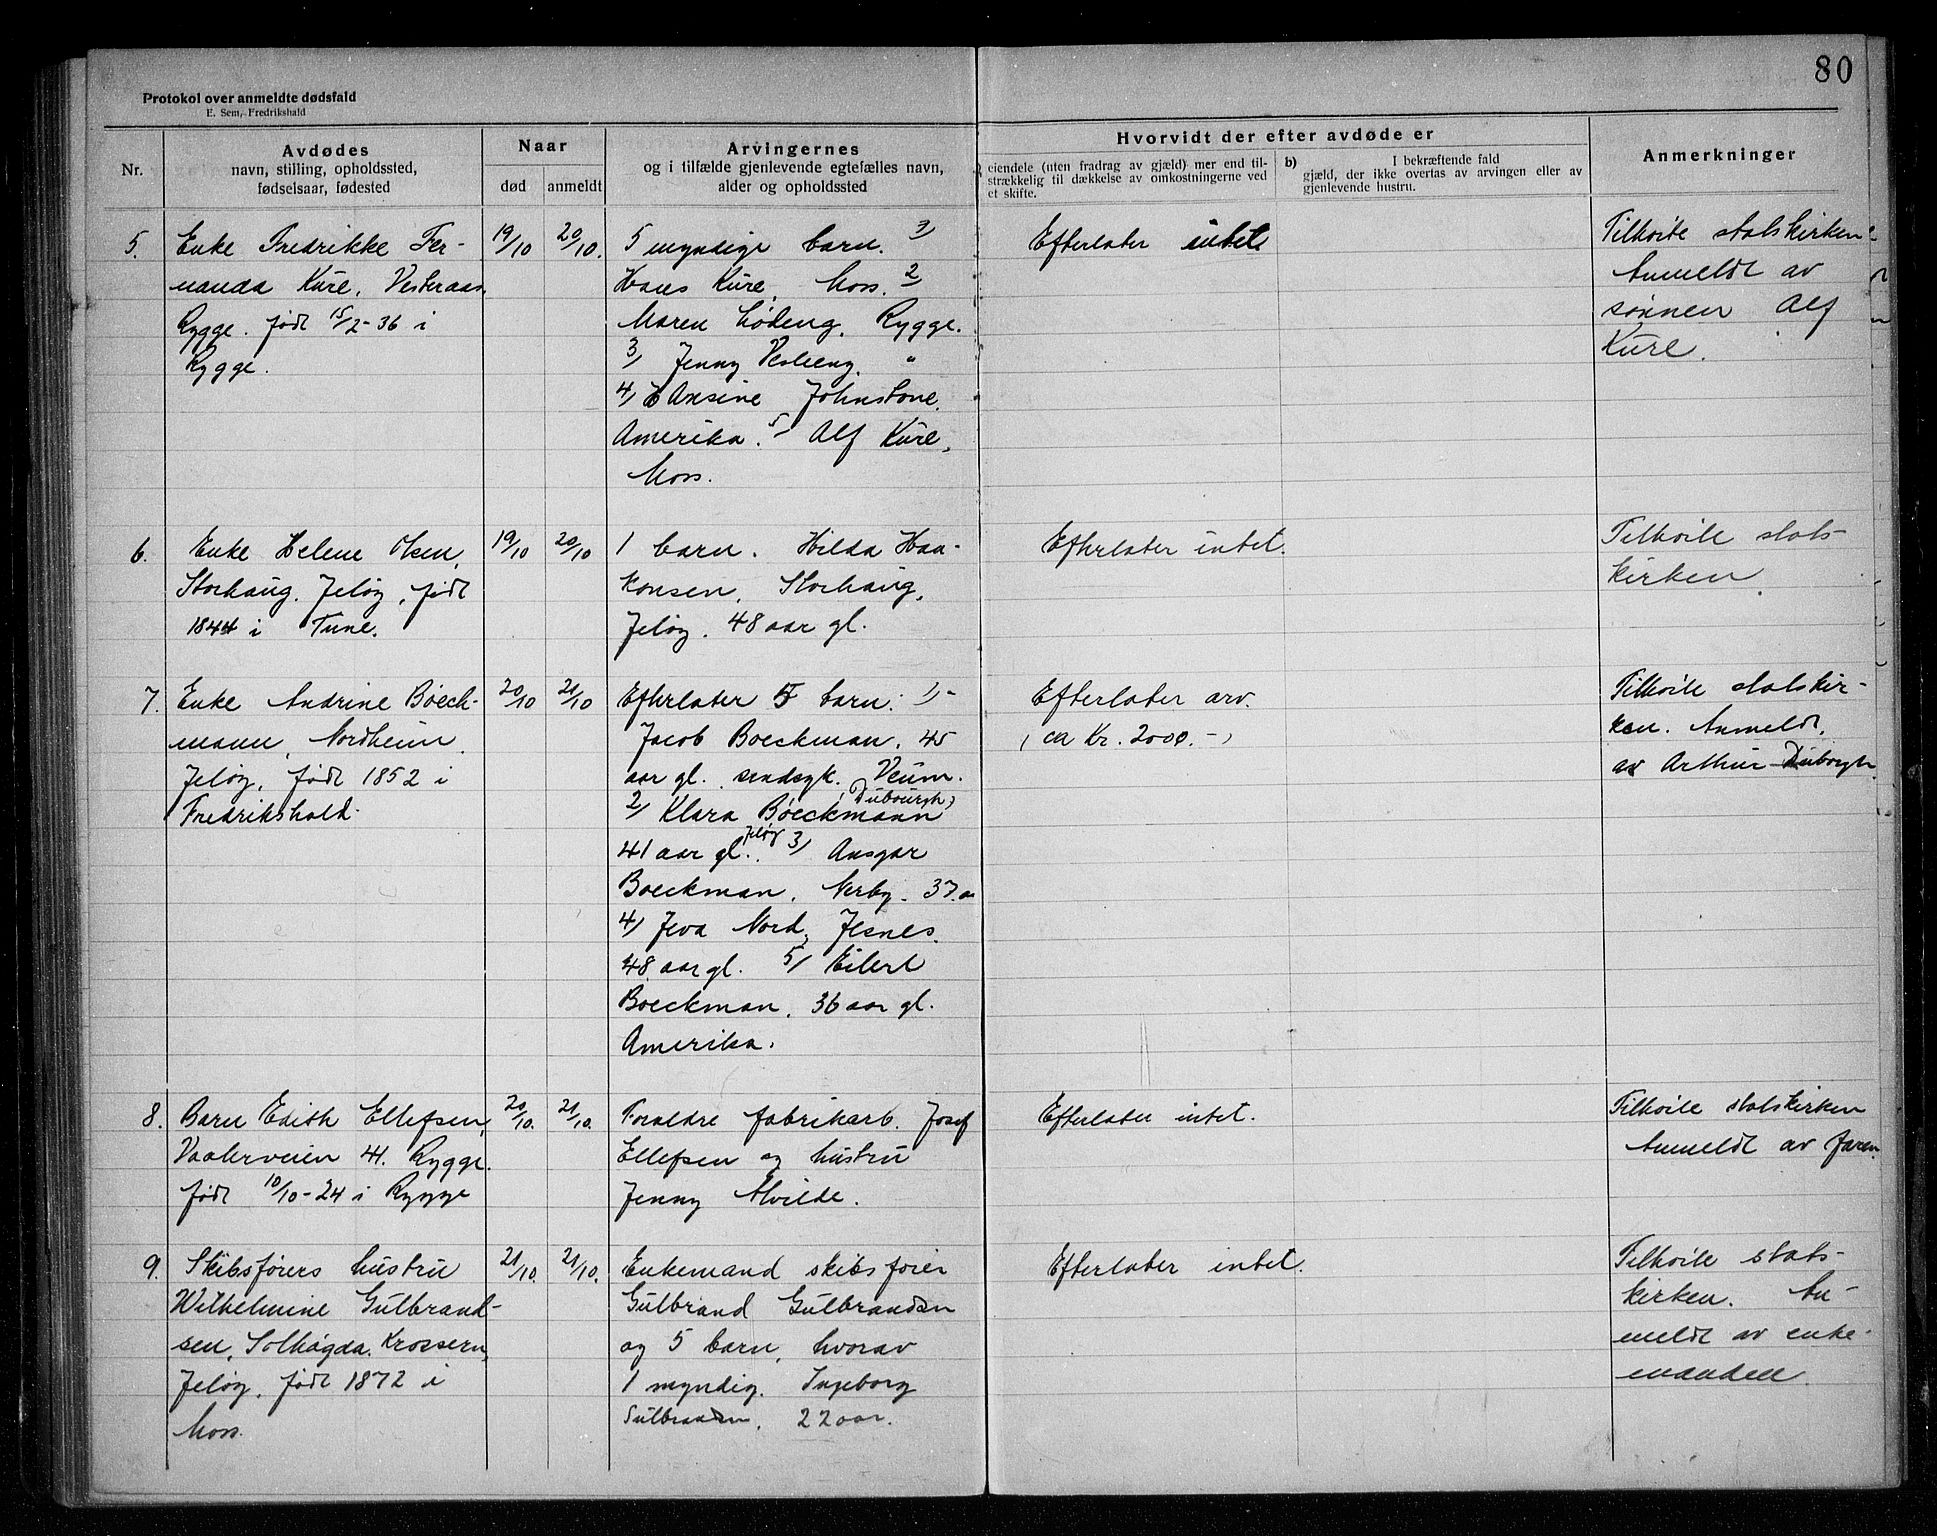 80
Protokol over anmeldte dødsfald
E. Sem, Fredrikshald
Nr.
Avdødes
navn, stilling, opholdssted,
fødselsaar, fødested
Naar
død
anmeldt
Arvingernes
og i tilfælde gjenlevende egtefælles navn,
alder og opholdssted
Hvorvidt der efter avdøde er
eiendele (uten fradrag av gjæld) mer end til-
strækkelig til dækkelse av omkostningerne ved
et skifte.
b)
I bekræftende fald
gjæld, der ikke overtas av arvingen eller av
gjenlevende hustru.
Anmerkninger
5.
Enke Fredrikke Fer-
nanda Kure, Vesteraas,
Rygge. født 15/2-36 i
Rygge.
19/10
20/10.
5 myndige barn.
Hans Kure, Moss. 2/
Maren Lødeng, Rygge.
3/ Jenny "
4/ Hansine Johnstone,
Amerika. 5/ Alf Kure,
Moss.
Efterlater intet
Tilhørte statskirken
Anmeldt av
sønnen Alf
Kure.
6.
Enke Helene Olsen,
Storhaug, Jeløy, født
1844 i Tune.
19/10
20/10
1 barn. Hilda Haa-
konsen, Storhaug,
Jeløy. 48 aar gl.
Efterlater intet.
Tilhørte stats-
kirken
7.
Enke Andrine Bøeck-
mann, Nordheim,
Jeløy, født 1852 i
Fredrikshald.
20/10
21/10
Efterlater 5 barn. 1/
Jacob Boeckman, 45
aar gl. sindsyk. Veum.
(Dubourgh)
2/ Klara Bøeckmann
Jeløy
41 aar gl. 3/ Ansgar
Boeckman, Nerby. 37 a
4/ Nord, Jesnes.
48 aar gl. 5/ Eilert
Boeckman, 36 aar gl.
Amerika.
Efterlater arv.
(ca Kr. 2000.-)
Tilhørte statskir-
ken. Anmeldt.
av Arthur Dubourgh.
8.
Barn Edith Ellefsen,
Vaalerveien 41. Rygge.
født 10/10-24 i Rygge
20/10.
21/10.
Foreldre fabrikarb. Josef
Ellefsen og hustru
Jenny Alvilde.
Efterlater intet.
Tilhørte statskirken
Anmeldt av faren.
9.
Skibsførers hustru
Wilhelmine Gulbrand-
sen, Solhøgda, Krossern,
Jeløy, født 1872 i
Moss.
21/10.
21/10.
Enkemand skibsfører
Gulbrand Gulbrandsen
og 5 barn, hvorav
1 myndig. Ingeborg
Gulbrandsen, 22 aar.
Efterlater intet.
Tilhørte stats-
kirken. An-
meldt av enke-
manden.